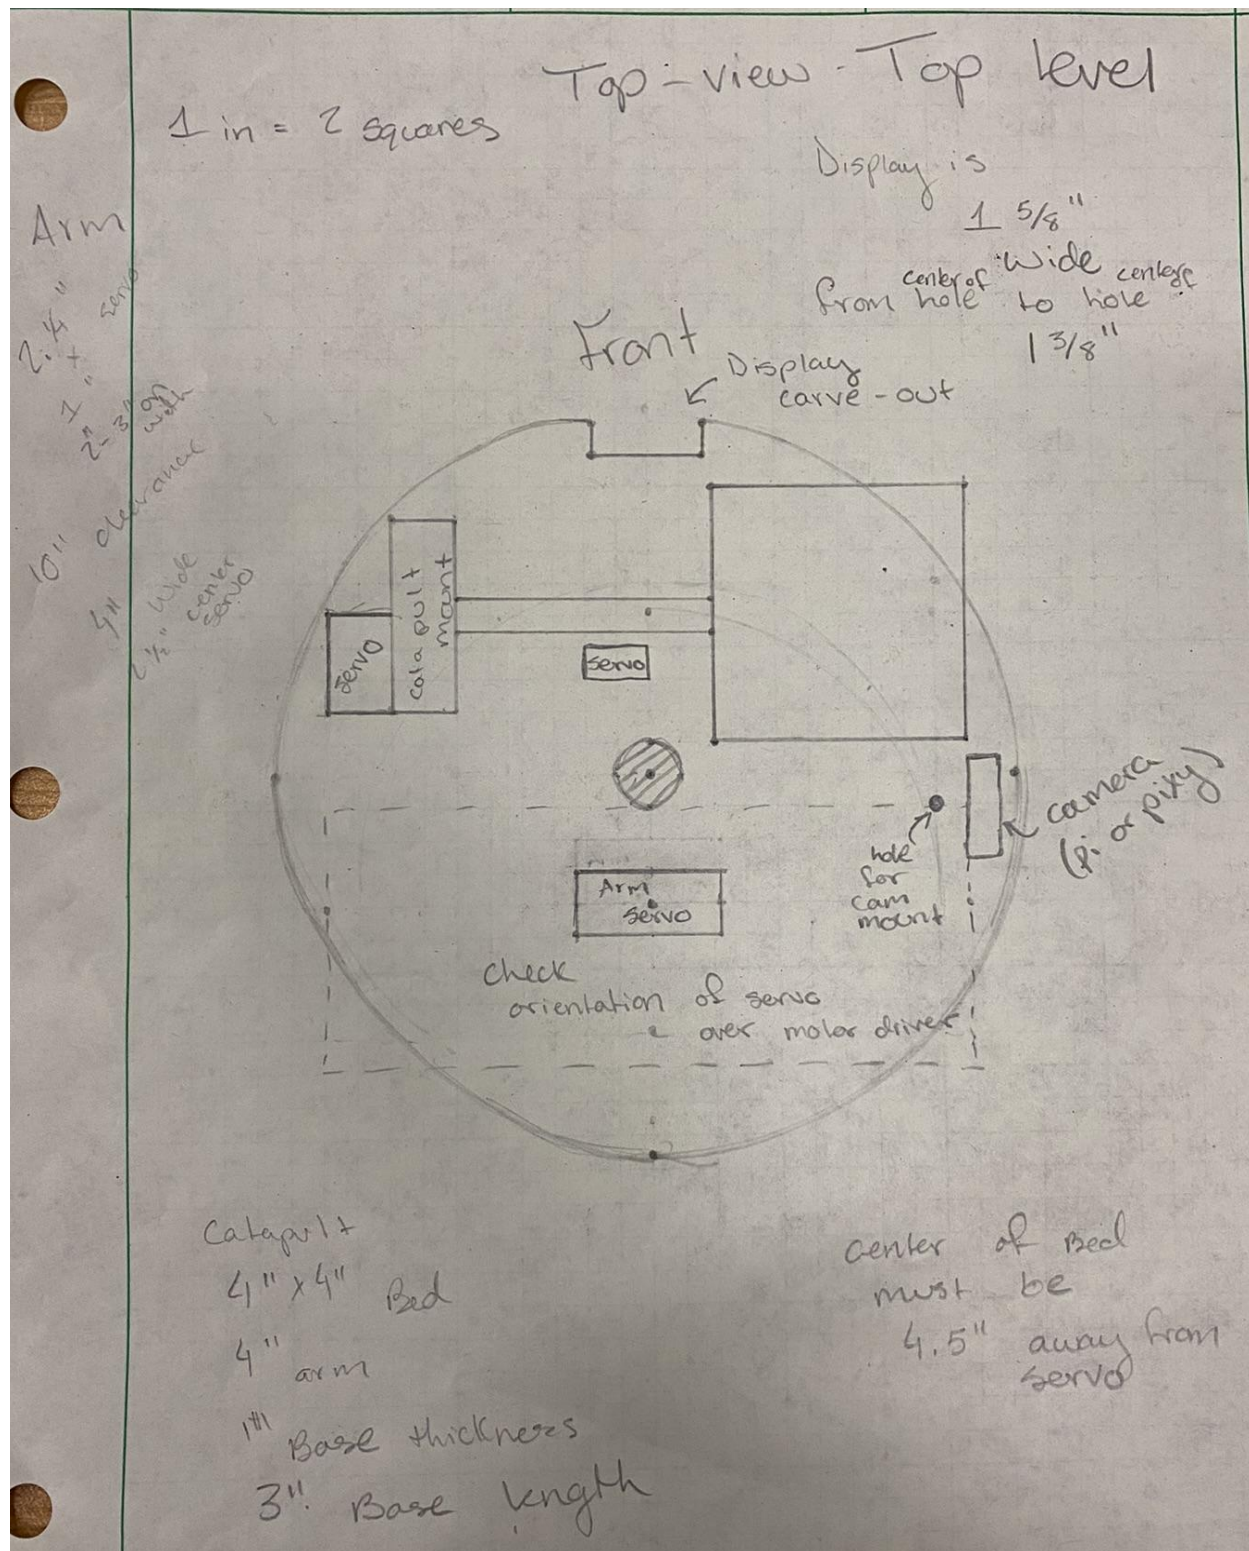 Top-view-Top level
1 in = 2 squares
Display is
1 5/8"
wide
from center of hole to center of hole
1 3/8"
Arm
2.
1" x servo
2"-3" on
with
10" clearance
4"
2 1/2" wide
center
servo
Front
Display
carve-out
catapult
mount
servo
servo
camera
(pi or pixy)
hole
for
cam
mount
Arm
servo
check
orientation of servo
over motor driver
Catapult
4" x 4" Bed
4" arm
1" Base thickness
3" Base length
center of Bed
must be
4.5" away from
servo